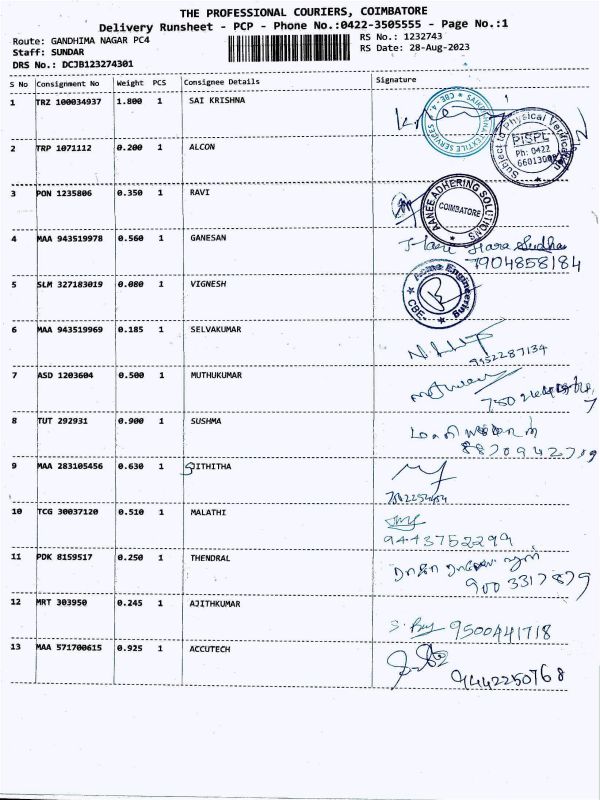 THE PROFESSIONAL COURIERS, COIMBATORE
Delivery Runsheet - PCP - Phone No.:0422-3505555 - Page No.:1
Route: GANDHIMA NAGAR PC4 RS No.: 1232743
Staff: SUNDAR RS Date: 28-Aug-2023
DRS No.: DCJB123274301
S No Consignment No Weight PCS Consignee Details Signature
1 TRZ 100034937 1.800 1 SAI KRISHNA
CBE - 4.
2 TRP 1071112 0.200 1 ALCON
Subject to Physical Verification
PISPL
Ph: 0422
3 PON 1235806 0.350 1 RAVI
AANEE ADHERING SOLUTIONS
COIMBATORE
4 MAA 943519978 0.560 1 GANESAN
7904858184
5 SLM 327183019 0.080 1 VIGNESH
Acme Engineering
CBE-
6 MAA 943519969 0.185 1 SELVAKUMAR
9952287134
7 ASD 1203604 0.500 1 MUTHUKUMAR
8 TUT 292931 0.900 1 SUSHMA
9 MAA 283105456 0.630 1 JITHITHA
10 TCG 30037120 0.510 1 MALATHI
9443752299
11 PDK 8159517 0.250 1 THENDRAL
9003317879
12 MRT 303950 0.245 1 AJITHKUMAR
9500441718
13 MAA 571700615 0.925 1 ACCUTECH
9442250768